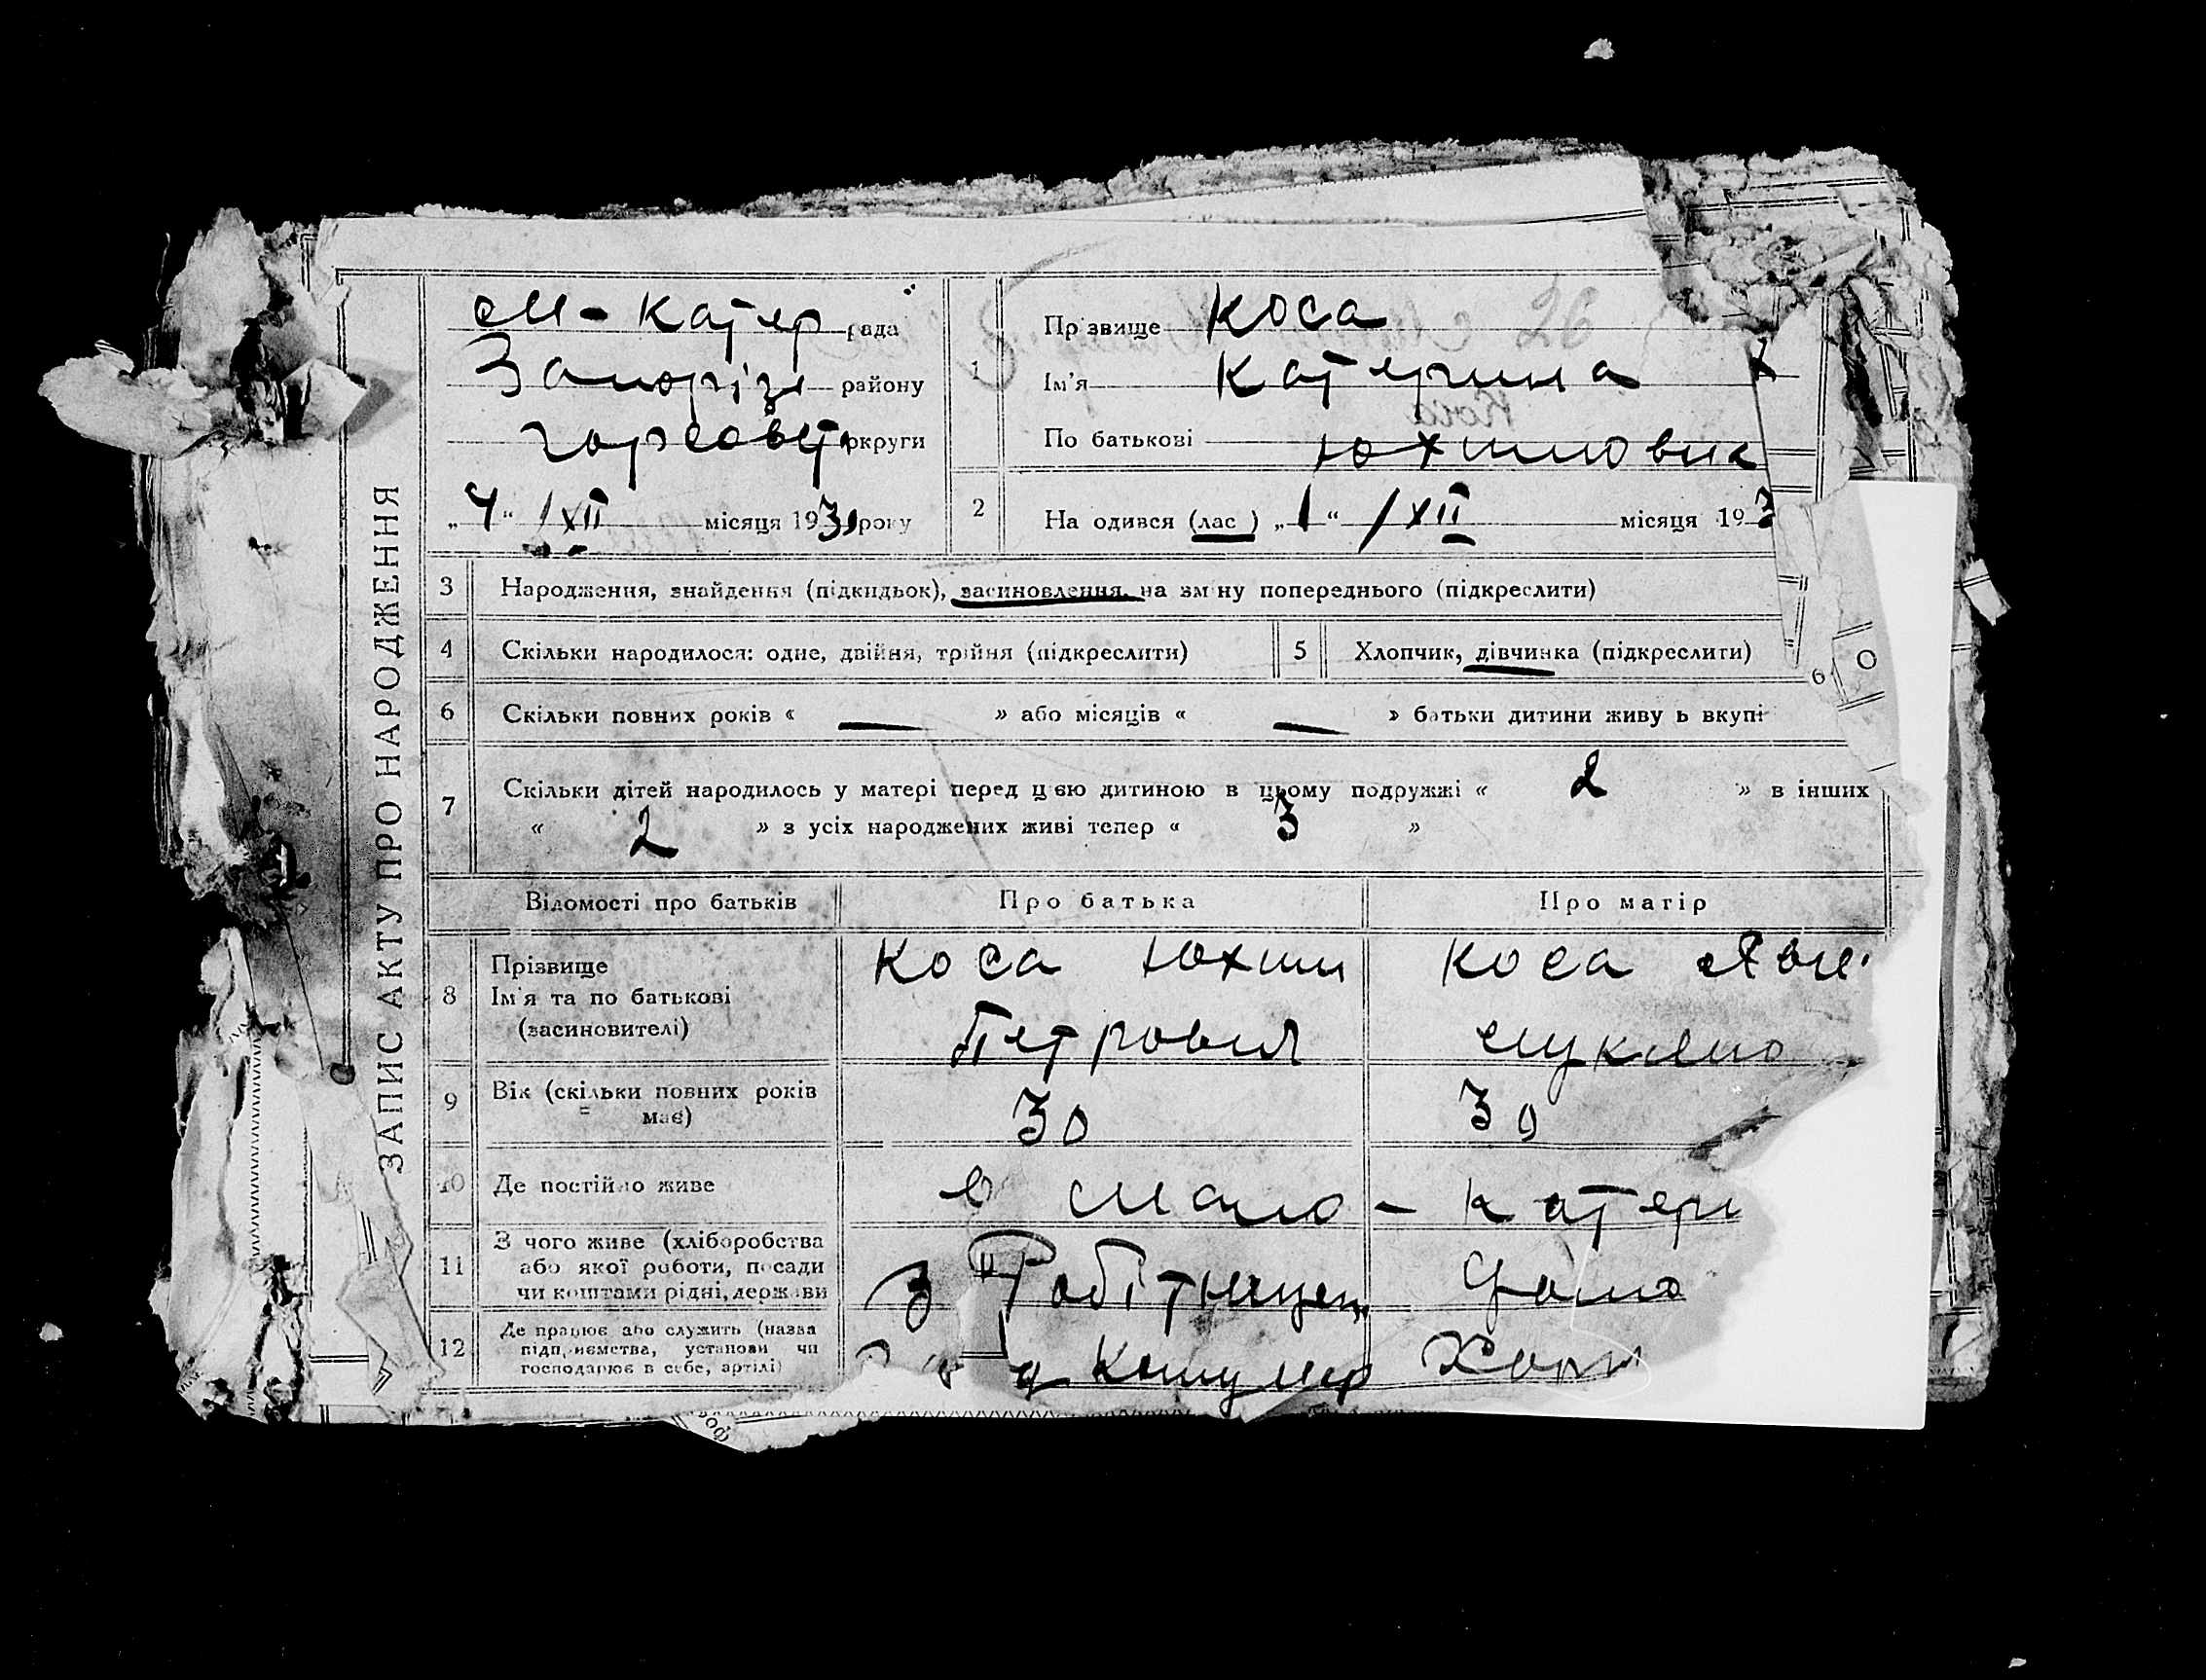 ЗАПИС АКТУ ПРО НАРОДЖЕННЯ
М-Катер рада
Запоріз району
горсовет округи
„ 4 " /XII місяця 1930 року
1
Пр звище Коса
Ім'я Катерина
По батькові Юхимовна
2 На одився (лас ) „ 1 " /XII місяця 193
3 Народження, знайдення (підкидьок), засиновлення, на зм ну попереднього (підкреслити)
4 Скільки народилося: одне, двійня, трійня (підкреслити)
5 Хлопчик, дівчинка (підкреслити)
6 Скільки повних років « — » або місяців « — » батьки дитини живу ь вкупі
7 Скільки дітей народилось у матері перед цією дитиною в цьому подружжі « 2 » в інших
« 2 » з усіх народжених живі тепер « 3 »
Відомості про батьків Про батька Про матір
8 Прізвище Ім'я та по батькові (засиновителі)
Коса Юхим Петрович
Коса Явд.
9 Вік (скільки повних років має) 30 30
10 Де постійно живе в Мало-Катери
11 З чого живе (хліборобства або якої роботи, посади чи коштами рідні, держави
З Робітницт
12 Де працює або служить (назва підприємства, установи чи господарює в себе, артілі)
Комунар